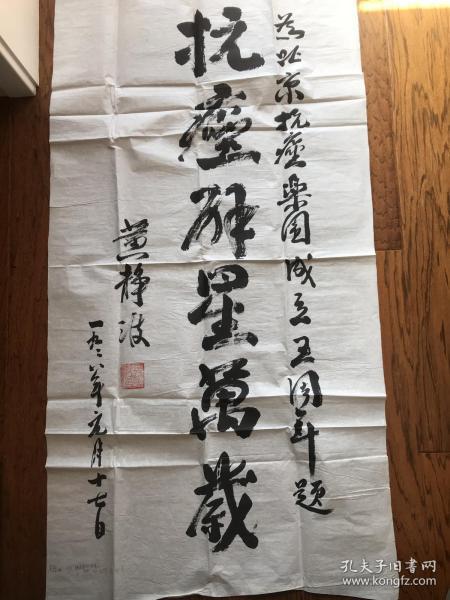 为北京抗癌樂园成立五周年题
抗癌群星萬歲
黄静波
一九九六年元月十七日
孔夫子旧书网
www.kongfz.com